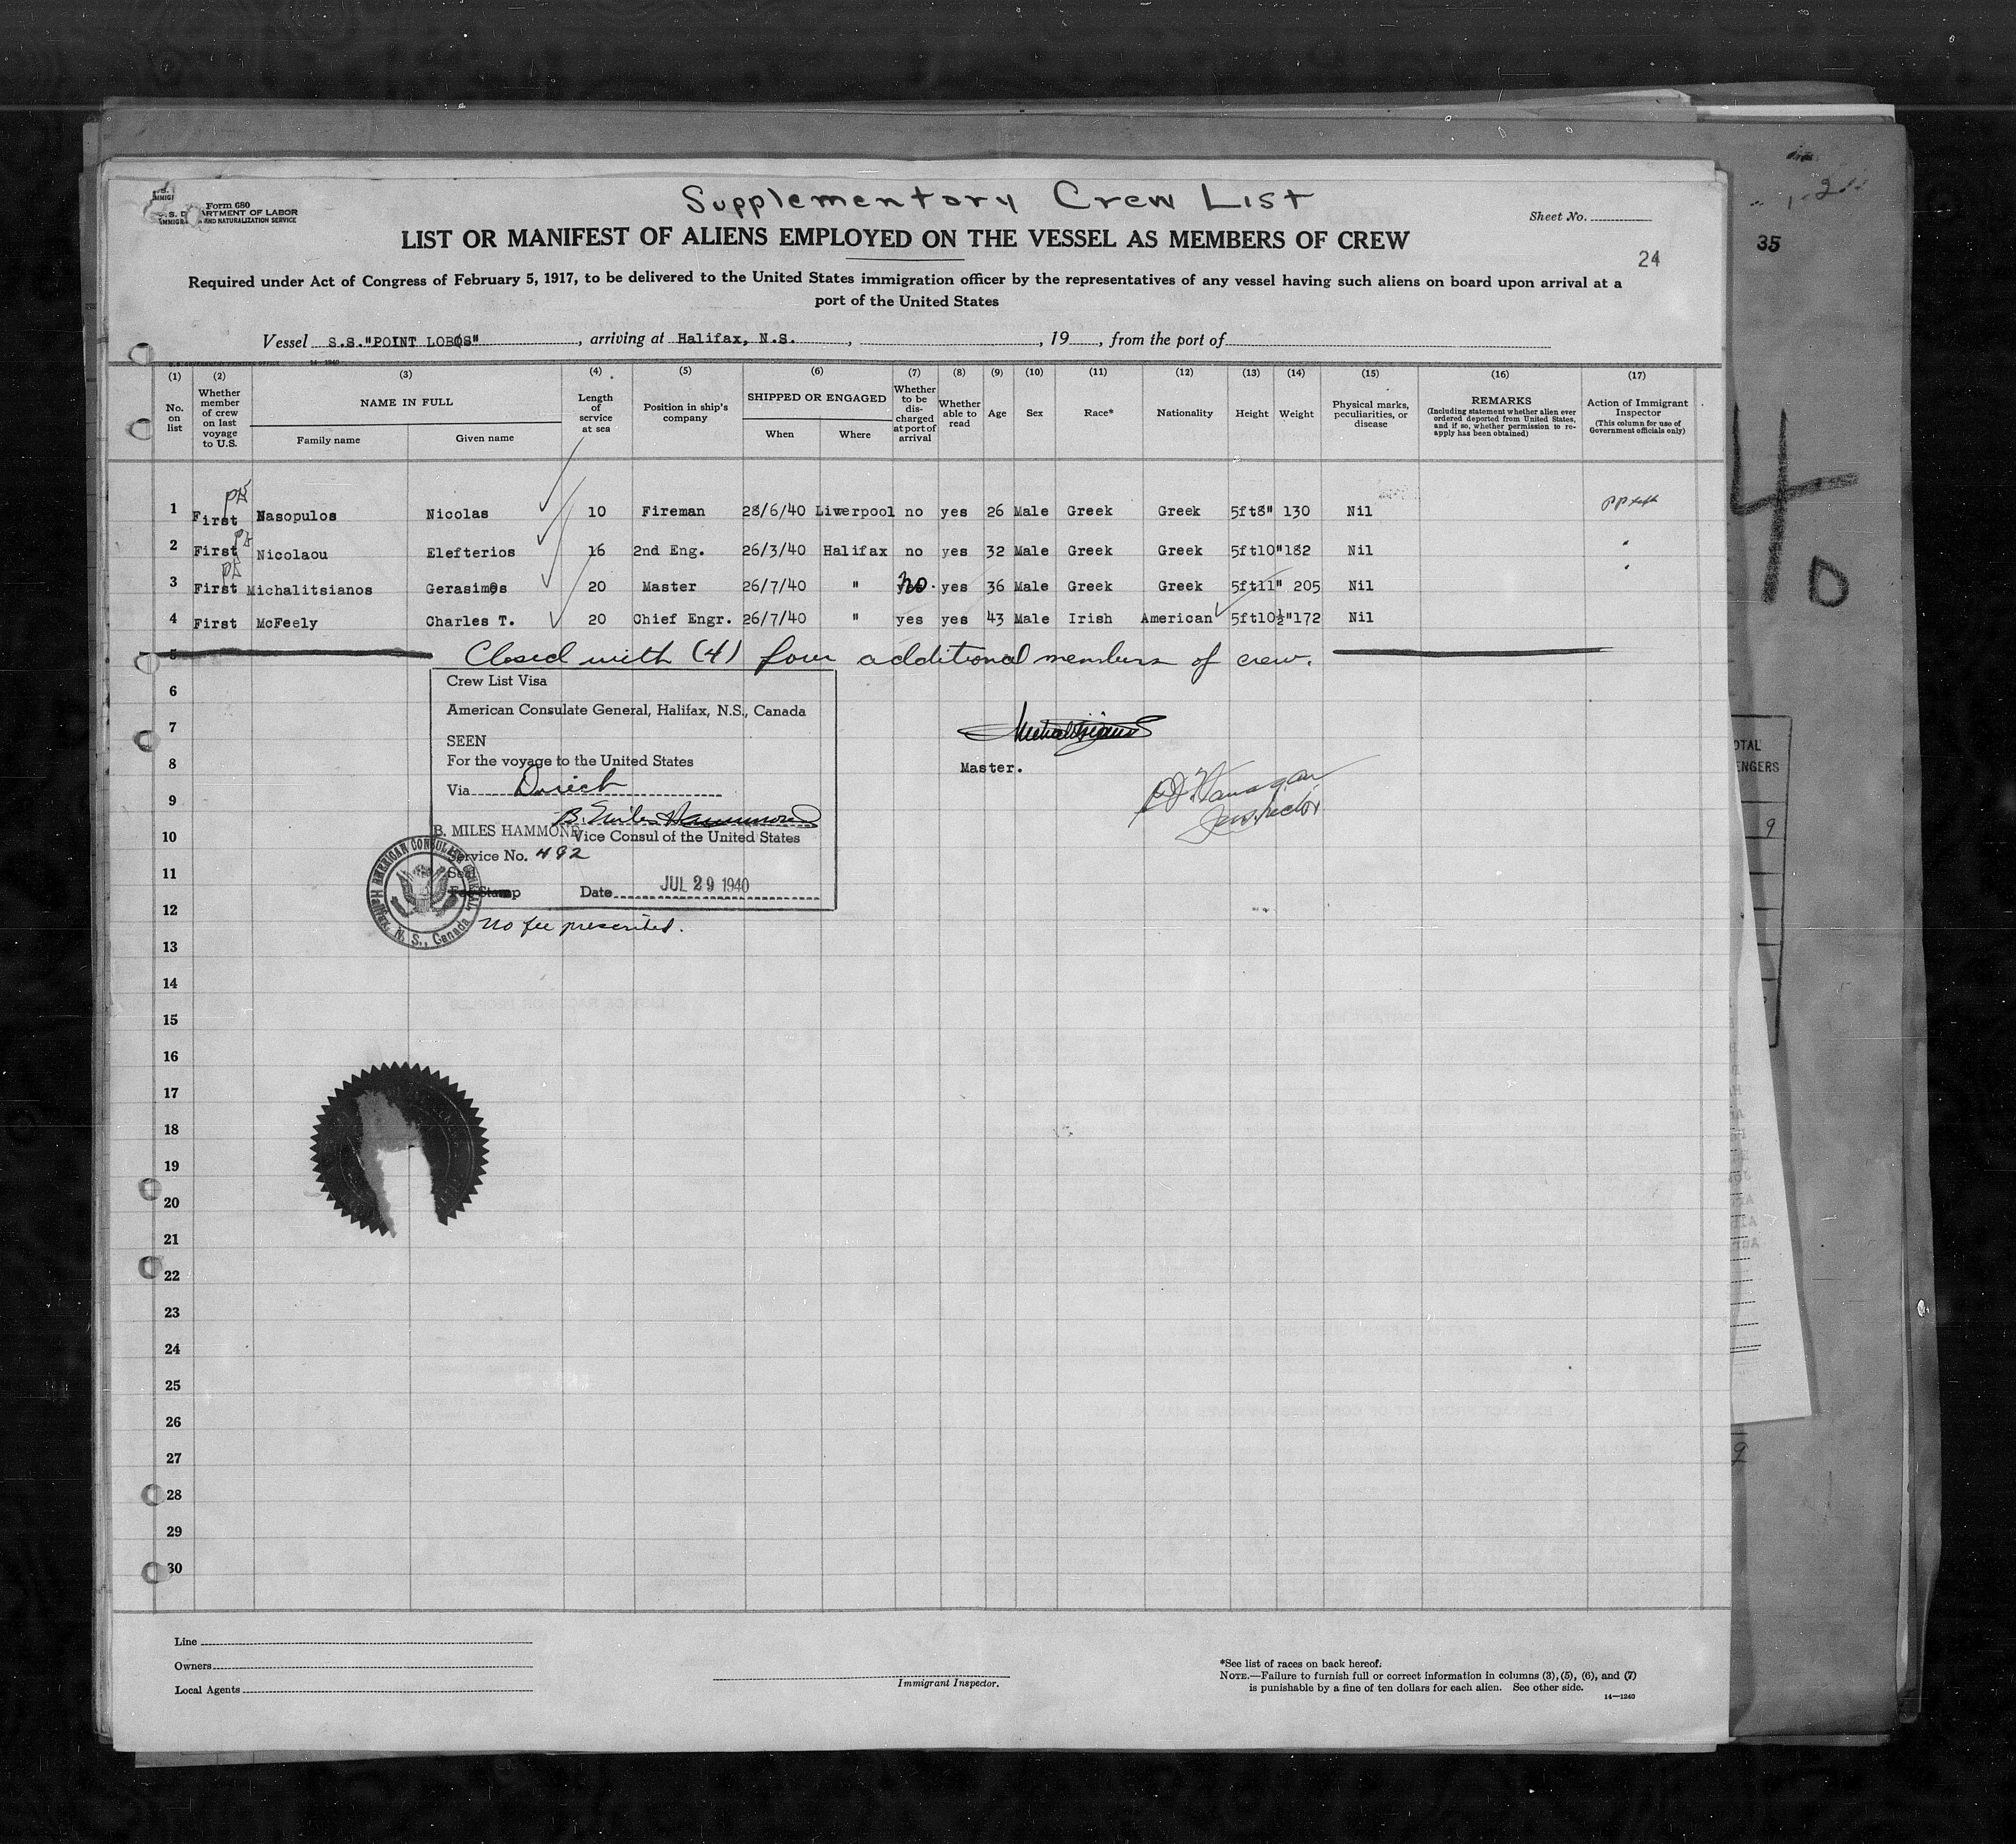 Supplementary Crew List
Form 680
U.S. DEPARTMENT OF LABOR
IMMIGRATION AND NATURALIZATION SERVICE
Sheet No.
LIST OR MANIFEST OF ALIENS EMPLOYED ON THE VESSEL AS MEMBERS OF CREW
24
35
Required under Act of Congress of February 5, 1917, to be delivered to the United States immigration officer by the representatives of any vessel having such aliens on board upon arrival at a
port of the United States
Vessel S.S."POINT LOBOS", arriving at Halifax, N.S., , 19 , from the port of
(1) (2) (3) (4) (5) (6) (7) (8) (9) (10) (11) (12) (13) (14) (15) (16) (17)
No. on list
Whether member of crew on last voyage to U.S.
NAME IN FULL
Family name Given name
Length of service at sea
Position in ship's company
SHIPPED OR ENGAGED
When Where
Whether to be discharged at port of arrival
Whether able to read
Age Sex Race* Nationality Height Weight
Physical marks, peculiarities, or disease
REMARKS
(Including statement whether alien ever ordered deported from United States, and if so, whether permission to re-apply has been obtained)
Action of Immigrant Inspector
(This column for use of Government officials only)
1 First Nasopulos Nicolas 10 Fireman 28/6/40 Liverpool no yes 26 Male Greek Greek 5ft8" 130 Nil
2 First Nicolaou Elefterios 16 2nd Eng. 26/3/40 Halifax no yes 32 Male Greek Greek 5ft10" 182 Nil
3 First Michalitsianos Gerasimos 20 Master 26/7/40 " no. yes 36 Male Greek Greek 5ft11" 205 Nil
4 First McFeely Charles T. 20 Chief Engr. 26/7/40 " yes yes 43 Male Irish American 5ft10½" 172 Nil
5 Closed with (4) four additional members of crew.
Crew List Visa
American Consulate General, Halifax, N.S., Canada
SEEN
For the voyage to the United States
Via Direct
B. Miles Hammond
B. MILES HAMMOND
Vice Consul of the United States
Service No. 492
Seal
Fee Stamp Date JUL 29 1940
AMERICAN CONSULATE GENERAL
Halifax, N. S., Canada
No fee prescribed.
Michalitsianos
Master.
Inspector
6
7
8
9
10
11
12
13
14
15
16
17
18
19
20
21
22
23
24
25
26
27
28
29
30
Line
Owners
Local Agents
Immigrant Inspector.
*See list of races on back hereof.
NOTE.—Failure to furnish full or correct information in columns (3), (5), (6), and (7)
is punishable by a fine of ten dollars for each alien. See other side.
14—1240